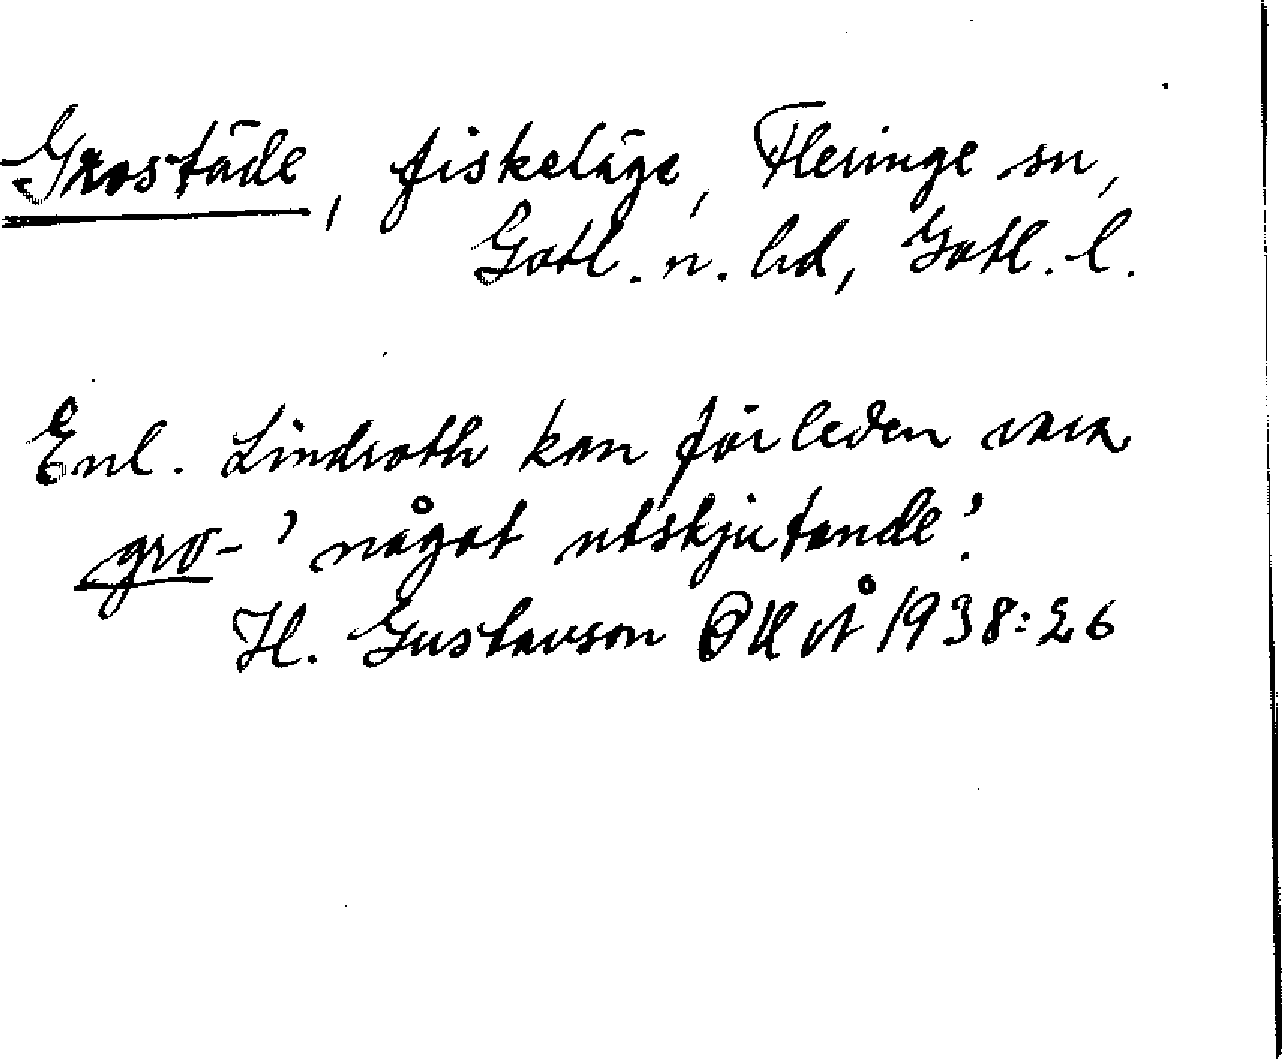 Grostäde, fiskeläge, Fleringe sn,
Gotl. n. hd, Gotl. l.
Enl. Lindroth kan förleden vara
gro- 'något utskjutande'.
H. Gustavson OUÅ 1938:26